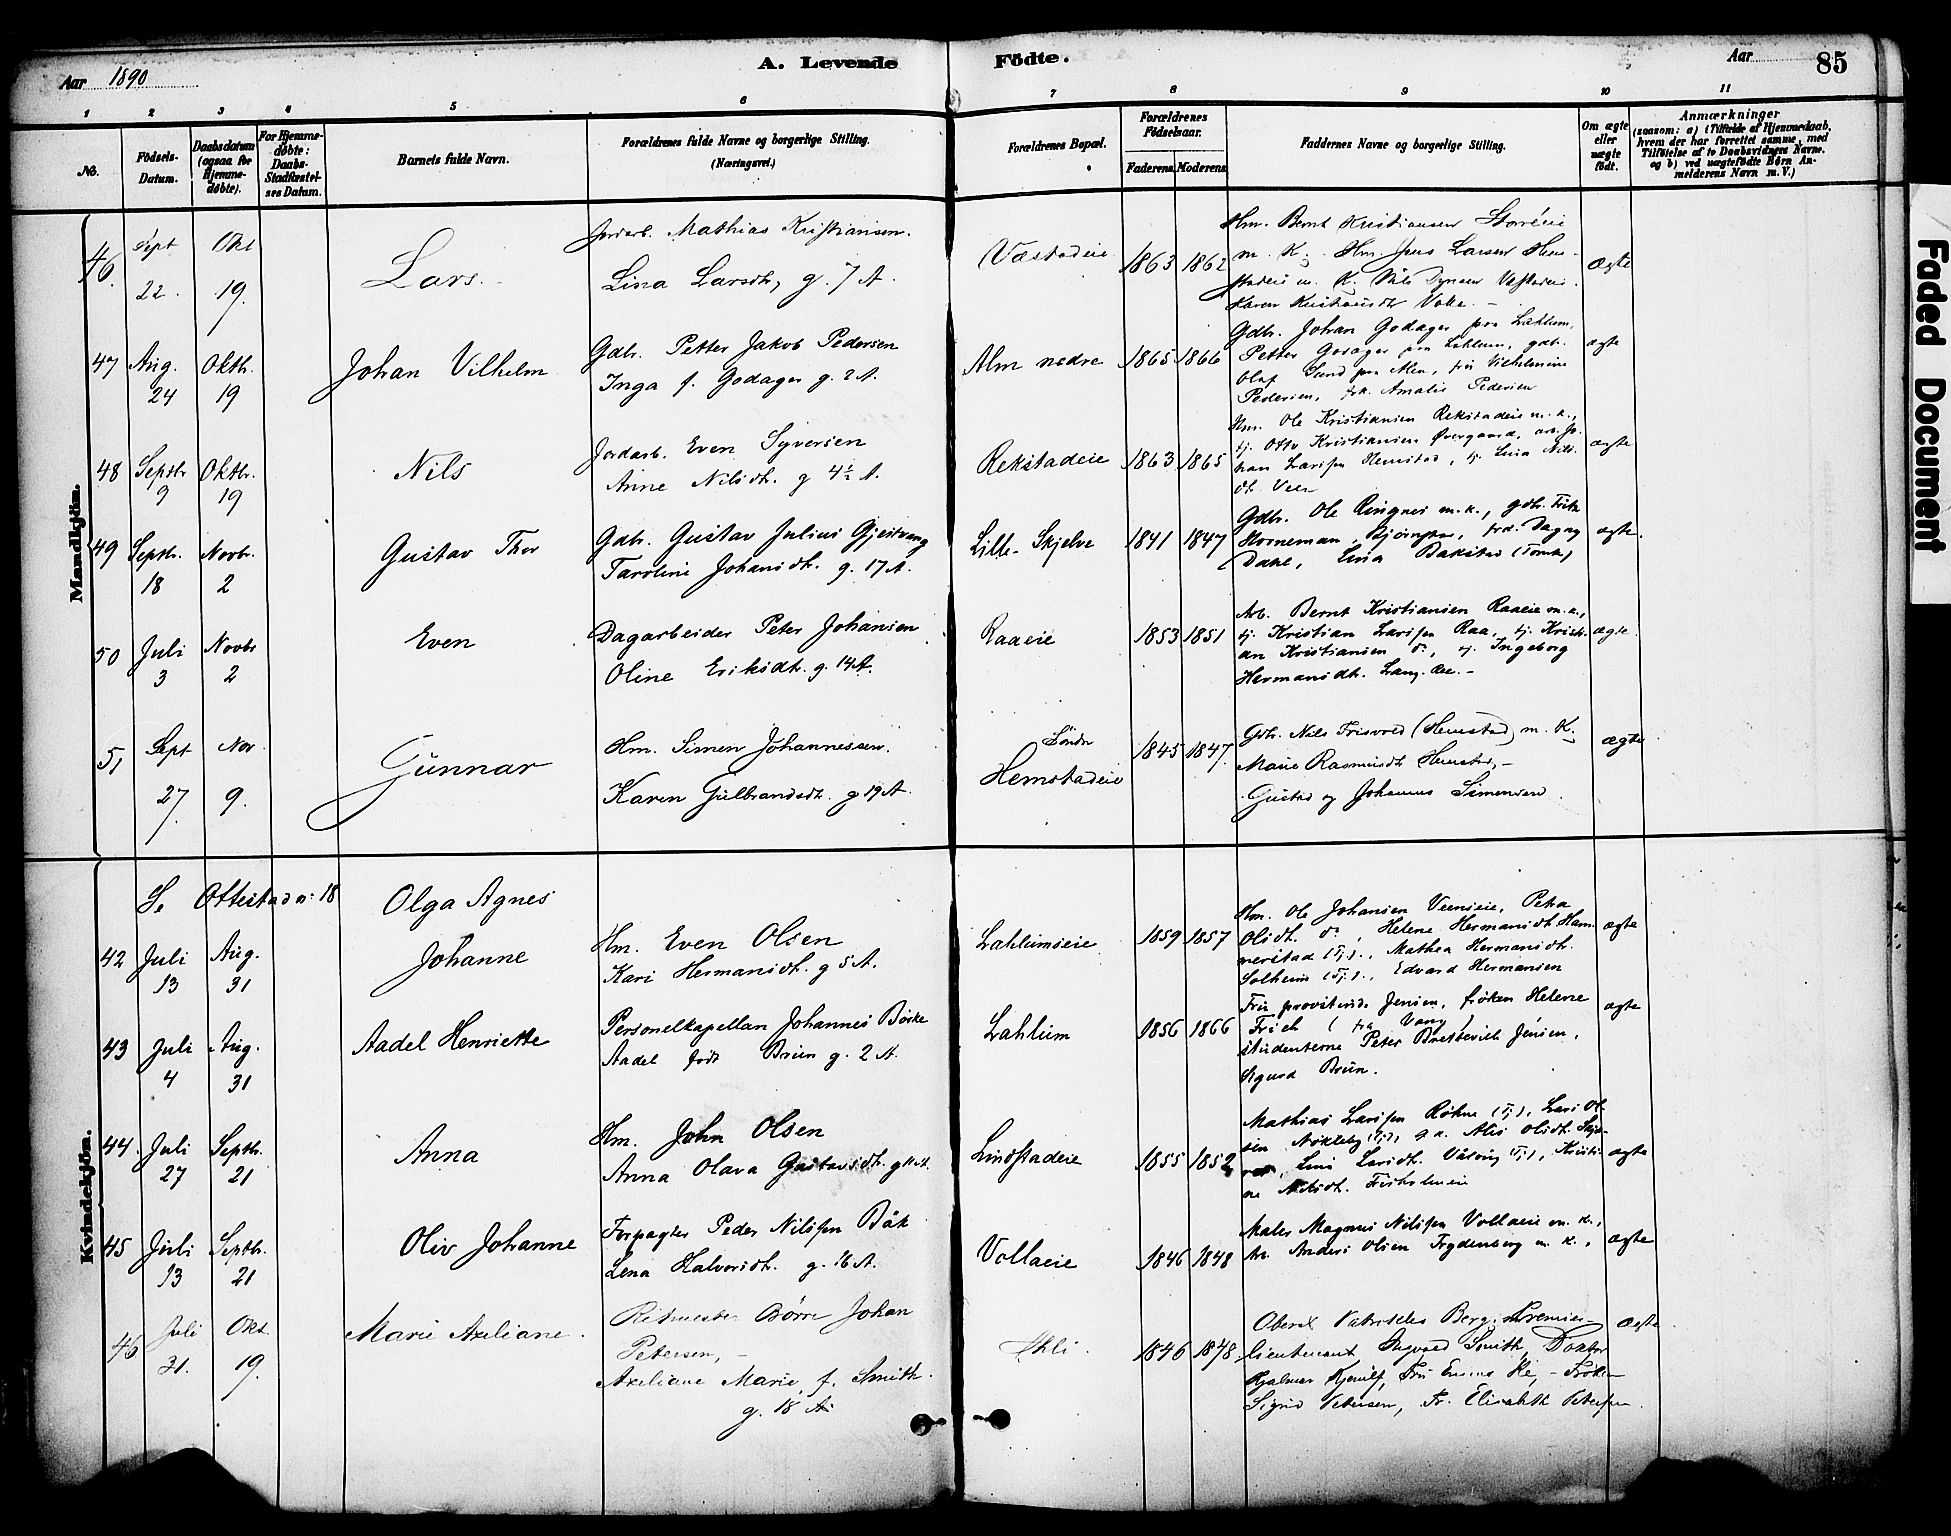 Aar 1890
A. Levende Födte.
Aar
85
1 2 3 4 5 6 7 8 9 10 11
No.
Födsels-Datum.
Daabsdatum (ogsaa for Hjemme-döbte).
For Hjemme-döbte: Daabs-Stadfæstel-ses Datum.
Barnets fulde Navn.
Forældrenes fulde Navne og borgerlige Stilling. (Næringsvei.)
Forældrenes Bopæl.
Forældrenes Födselsaar.
Faderens Moderens
Faddernes Navne og borgerlige Stilling.
Om ægte eller uægte födt.
Anmærkninger
(saasom: a) i Tilfælde af Hjemmedaab,
hvem der har forrettet samme, med
Tilföielse af to Daabsvidners Navne.
og b) ved uægtefödte Börn An-
melderens Navn m. V.)
Mandkjön.
46. Sept 22. Okt 19.
Lars.
Jordarb. Mathias Kristiansen.
Lina Larsdtr, g. 7 A.
Væstadeie 1863 1862
Hm. Bernt Kristiansen
m. K. Hm. Jens Larsen Hem-
stadeie m. K.
ægte
47 Aug. 24 Oktbr. 19
Johan Vilhelm
Gdbr. Petter Jakob Pedersen
Inga f. Godager g. 2 A.
Alm nedre 1865 1866
Gdbr. Johan Godager paa Lahlum,
Petter Godager paa Lahlum, gdbr.
Olaf Sund paa Alm, fru Vilhelmine
Pedersen, frk. Amalie Pedersen
ægte
48 Septbr 9 Oktbr. 19
Nils
Jordarb. Even Syversen
Anne Nilsdtr. g 4½ A.
Rekstadeie 1863 1865
Hm. Ole Kristiansen Rekstadeie m. k.,
tj. Otto Kristiansen Övergaard, arb. Jo-
han Larssen Hemstad, tj. Lina Nils-
dt. Veen
ægte
49 Septbr. 18 Novbr. 2
Gustav Thor
Gdbr. Gustav Julius Gjestvang
Taroline Johansdtr. g. 17 A.
Lille-Skjelve 1841 1847
Gdbr. Ole Ringnes m. k., gdbr. Fritz
Horneman, , frk. Dagny
, Lina Bakstad (Tomt)
ægte.
50 Juli 3 Novbr 2
Even
Dagarbeider Peter Johansen
Oline Eriksdtr. g. 14 A.
Raaeie 1853 1851
Arb. Bernt Kristiansen Raaeie m. k.,
tj. Kristian Larssen Raa, tj. Kristi-
an Kristiansen do, tj. Ingeborg
Hermansdtr.
ægte.
51 Sept 27. Nov. 9.
Gunnar
Hm. Simen Johannessen.
Karen Gulbrandsdtr. g 19 A.
Söndr
Hemstadeie 1845 1847.
Gdbr. Nils Frisvold (Hemstad) m. K.
Marie Rasmusdt Hemstad, –
Gustav og Johannes Simensen.
ægte
Kvindekjön.
Se Ottestad n: 18 Olga Agnes
42 Juli 13 Aug. 31
Johanne
Hm. Even Olsen
Kari Hermansdtr. g 5 A.
Lahlumseie 1859 1857
Hm. Ole Johansen Veenseie, Petra
Olsdt. do, Helene Hermansdt. Ham-
merstad (Tj.), Mathea Hermansdt.
Solheim (Tj.), Edvard Hermansen
ægte
43 Juli 4 Aug. 31
Aadel Henriette
Personelkapellan Johannes Börke
Aadel född Bruun g. 2 A.
Lahlum 1856 1866
Fru provstinde Jensen, fröken Helene
Frich (fra Vang)
studenterne Peter Bretteville Jensen,
Sigurd Bruun.
ægte
44. Juli 27 Septbr. 21
Anna
Hm. John Olsen
Anna Olava Gustavsdtr. g 11 A.
Lindstadeie 1855 1852
Mathias Larssen Röhne (Tj), Lars Ol-
sen Nökleby (Tj), Olsdt.
Lina Larsdt. (Tj), Kristi-
ne Nilsdt.
ægte
45 Juli 13 Septbr. 21
Oliv Johanne
Forpagter Peder Nilssen Bäk
Lena Halvorsdtr. g. 16 A.
Vollaeie 1846 1848
Maler Magnus Nilssen Vollaeie m. k.,
Anders Olsen Frydenberg m. k.,
ægte
46 Juli 31. Okt. 19.
Marie Axeliane.
Ritmester Börre Johan
Petersen, –
Axeliane Marie, f. Smith.
g. 18 A.
1846 1848
Oberst Patroklus Berg. Premier-
lieutenant Ingvald Smith, Doktor
Hjalmar , Fru Emma , – Fröken
Sigrid Petersen, Fr. Elisabeth Petersen.
ægte
Faded Document